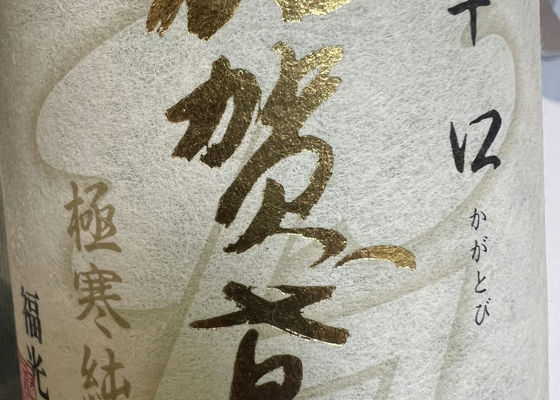 口
かがとび
加賀
極寒純
福光